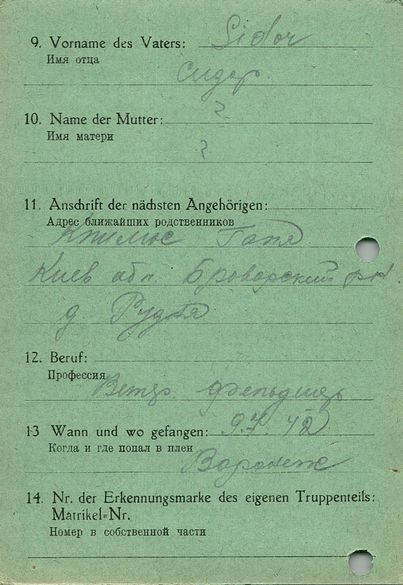 9. Vorname des Vaters: Sidor
Имя отца
Сидор
10. Name der Mutter: ?
Имя матери
?
11. Anschrift der nächsten Angehörigen:
Адрес ближайших родственников
Киев обл. Броварский рн
д Рудня
12. Beruf:
Профессия
Ветер. фельдшер
13 Wann und wo gefangen: 9.7.42
Когда и где попал в плен
Воронеж
14. Nr. der Erkennungsmarke des eigenen Truppenteils:
Matrikel-Nr.
Номер в собственной части